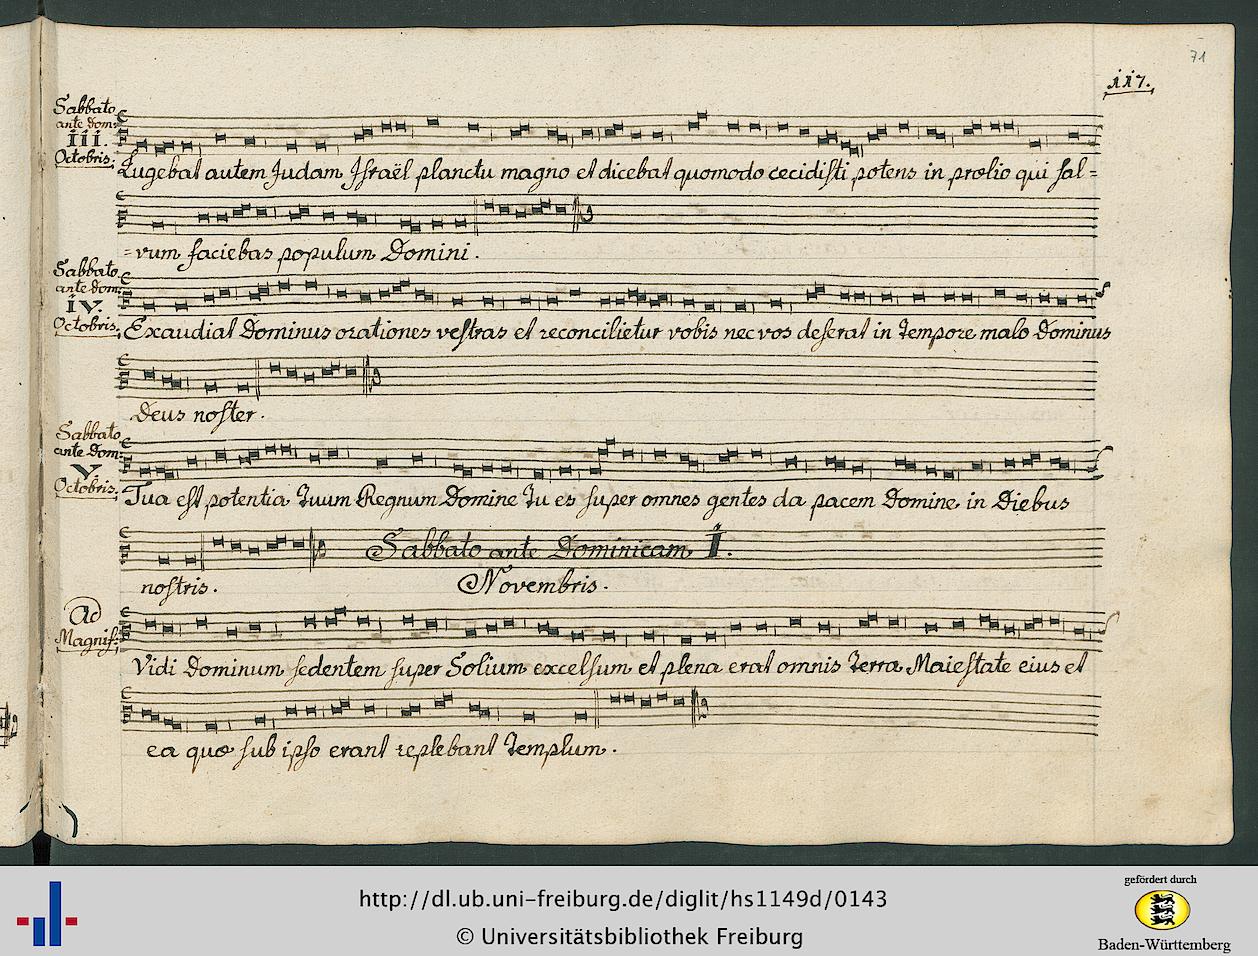 71
117.
Sabbato
ante Dom:
III.
Octobris.
Lugebat autem Judam Iſraël planctu magno et dicebat quomodo cecidiſti potens in prœlio qui ſal=
=vum faciebas populum Domini.
Sabbato
ante Dom:
IV.
Octobris.
Exaudiat Dominus orationes veſtras et reconcilietur vobis nec vos deſerat in tempore malo Dominus
Deus noſter.
Sabbato
ante Dom:
V.
Octobris.
Tua eſt potentia tuum Regnum Domine tu es ſuper omnes gentes da pacem Domine in Diebus
Sabbato ante Dominicam I.
noſtris.
Novembris.
Ad
Magnif:
Vidi Dominum ſedentem ſuper Solium excelſum et plena erat omnis terra Maieſtate eius et
ea quæ ſub ipſo erant replebant templum.
http://dl.ub.uni-freiburg.de/diglit/hs1149d/0143
© Universitätsbibliothek Freiburg
gefördert durch
Baden-Württemberg